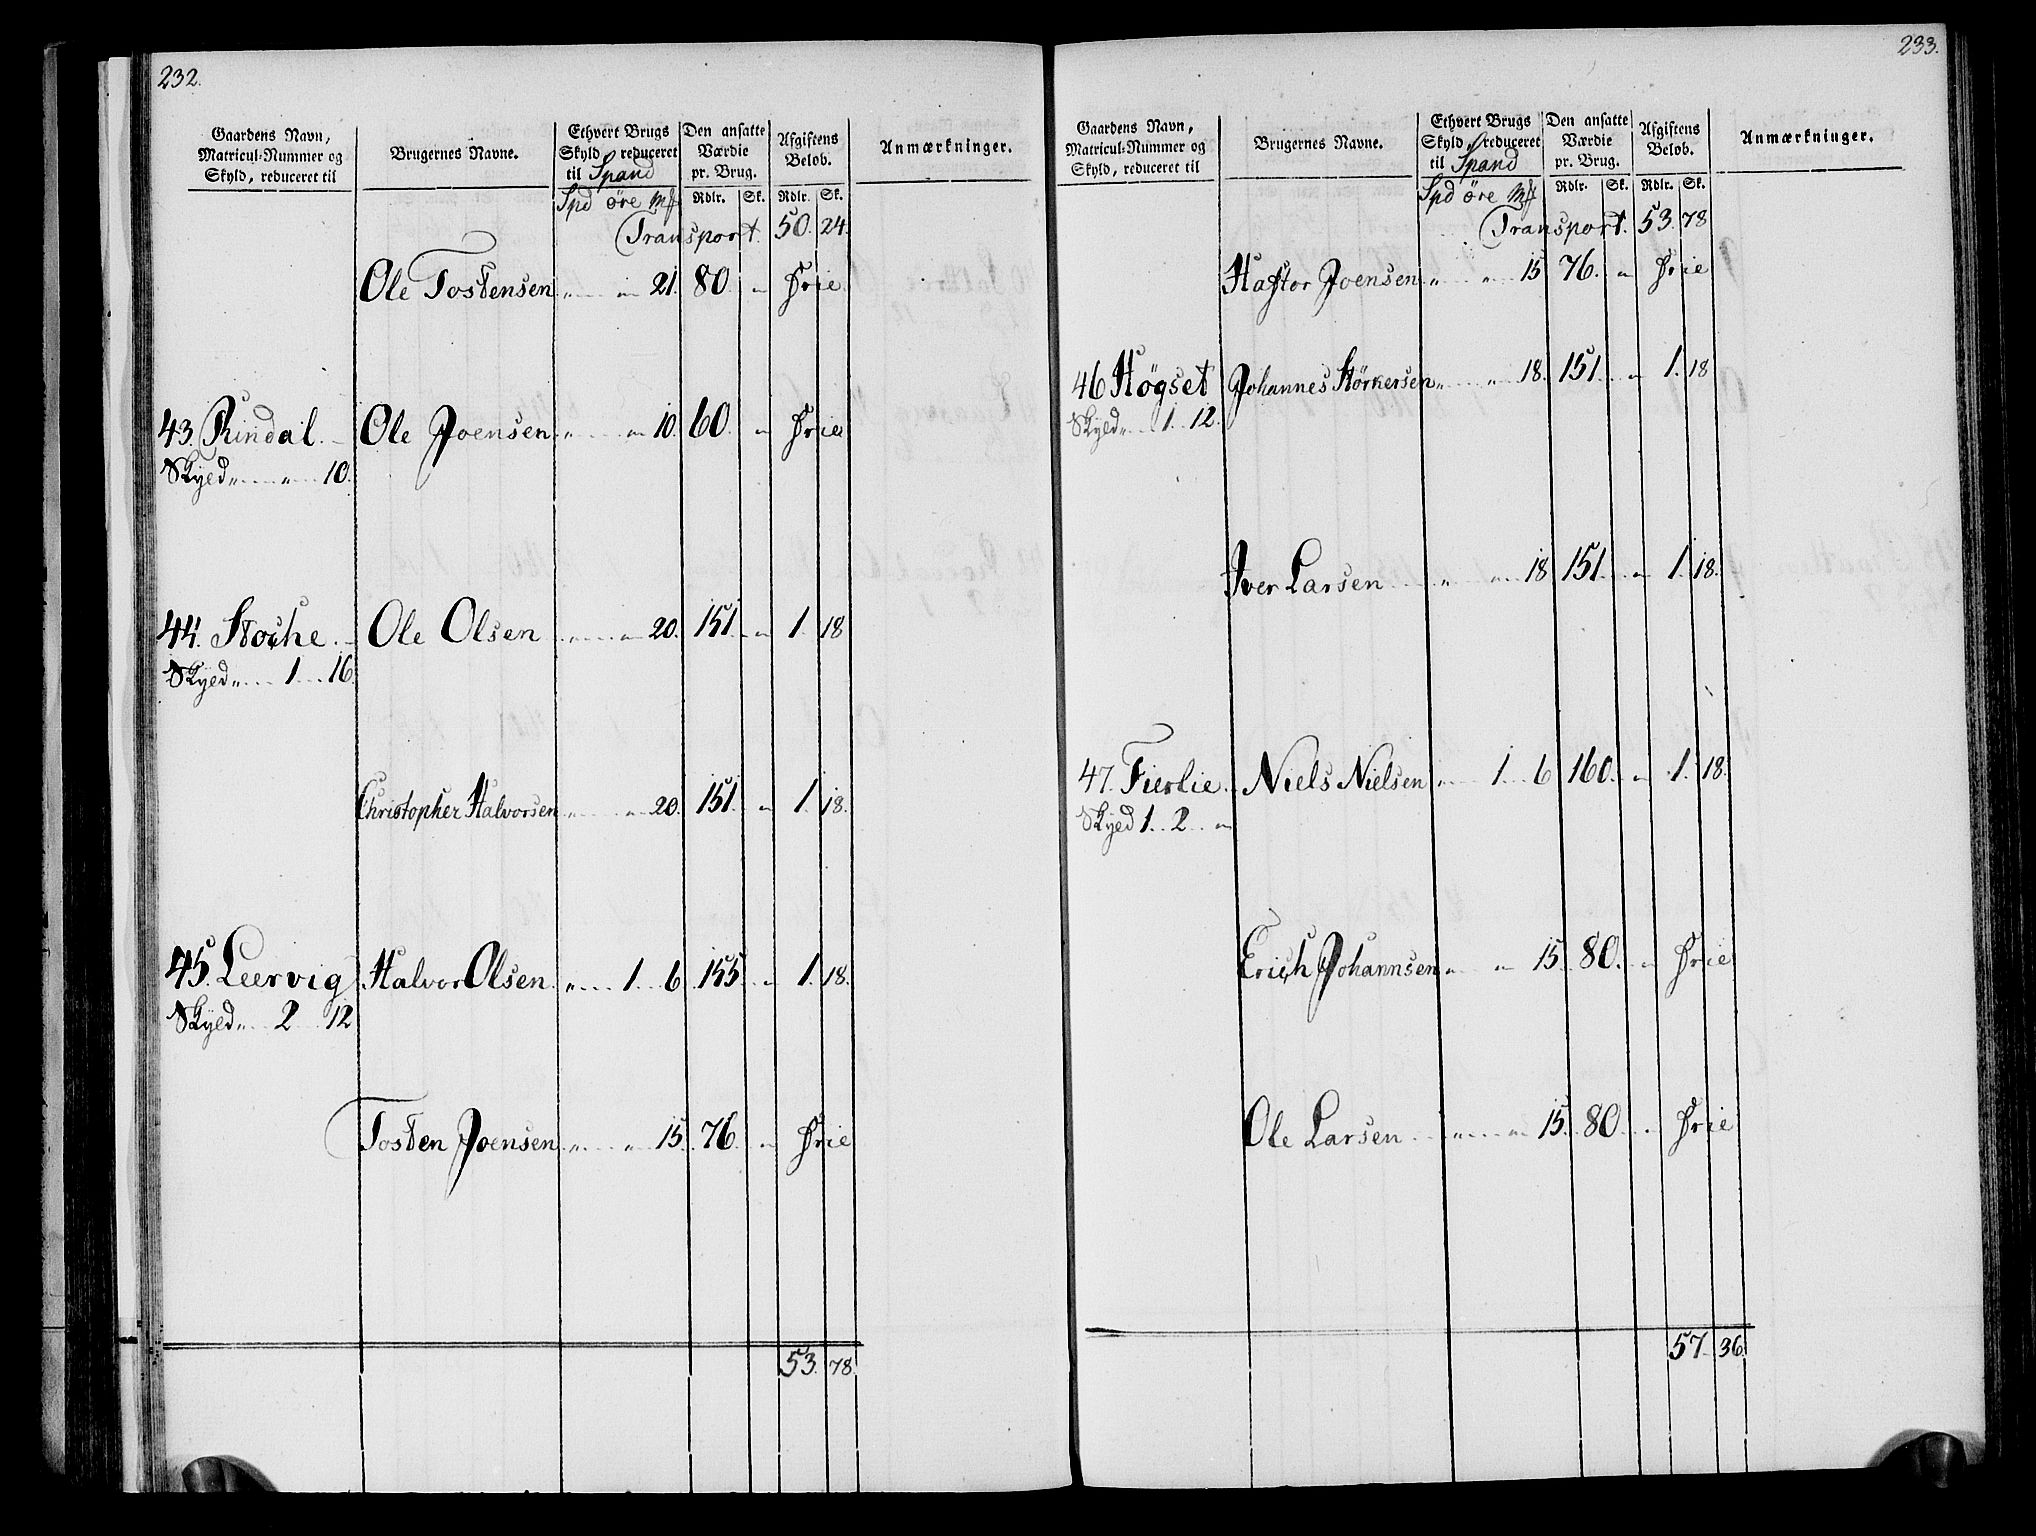 232.
Gaardens Navn, Matricul-Nummer og Skyld, reduceret til | Brugernes Navne. | Ethvert Brugs Skyld, reduceret til Spand | Den ansatte Værdie pr. Brug. | Afgiftens Beløb. | Anmærkninger.
Spd øre | Rdlr. | Sk. | Rdlr. | Sk.
Transport. 50. 24.
Ole Tostensen „ „ 21. 80. „ Frie
43. Rindal. Ole Joensen „ „ 10. 60. „ Frie
Skyld „ „ 10.
44. Stoche. Ole Olsen „ „ 20. 151. „ 1. 18
Skyld „ 1 16.
Christopher Halvorsen „ „ 20. 151. „ 1. 18.
45. Leervig Halvor Olsen. „ 1 6 155 „ 1. 18.
Skyld „ 2 12
Tosten Joensen „ „ 15. 76. „ Frie
53. 78.
233.
Gaardens Navn, Matricul-Nummer og Skyld, reduceret til | Brugernes Navne. | Ethvert Brugs Skyld, reduceret til Spand | Den ansatte Værdie pr. Brug. | Afgiftens Beløb. | Anmærkninger.
Spd øre | Rdlr. | Sk. | Rdlr. | Sk.
Transport. 53. 78
Haftor Joensen „ „ 15 76. „ Frie
46 Høgset Johannes Størkersen „ „ 18. 151. „ 1. 18
Skyld „ 1 12.
Iver Larsen „ „ 18 151. „ 1. 18.
47. Fierlie. Niels Nielsen „ 1 6 160. „ 1. 18.
Skyld 1 2 „
Erich Johannsen „ „ 15. 80. „ Frie
Ole Larsen „ „ 15. 80. „ Frie
57. 36.